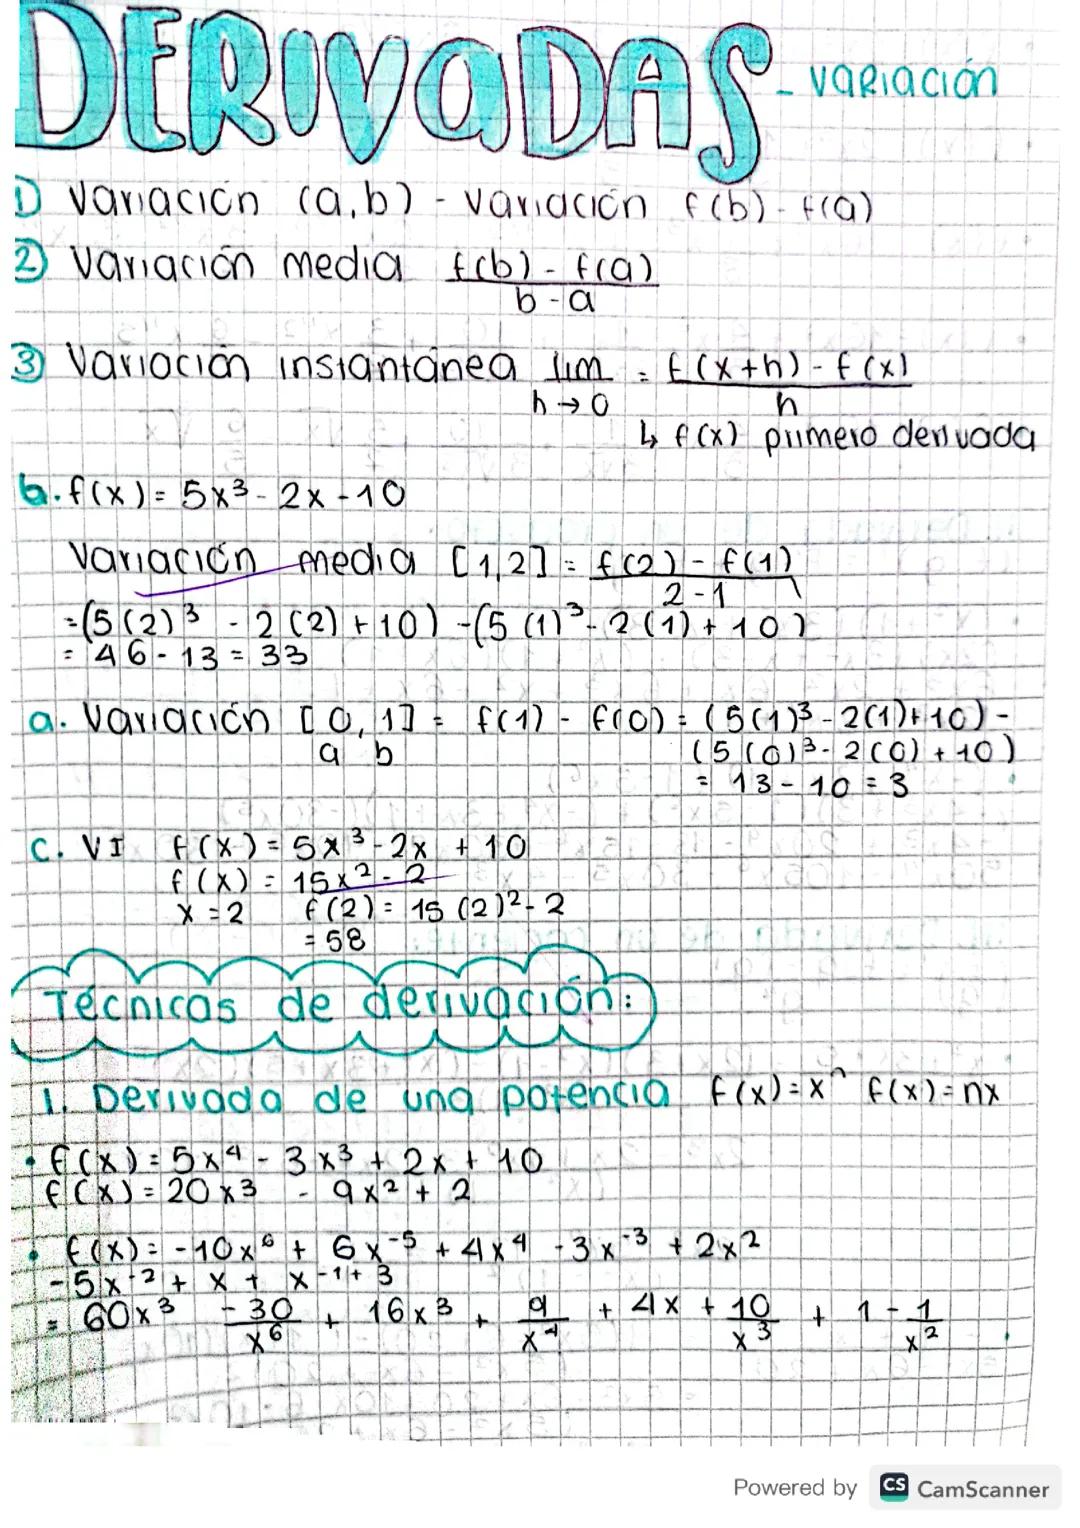 DERIVADAS - variación
1) Variación (a,b) - variación f(b) - f(a)
2) Variación media f(b) - f(a)
b - a
3) Variación instantánea lim = f(x+h) - f(x)
h → 0 h
↳ f(x) primera derivada
b. f(x) = 5x³ - 2x - 10
Variación media [1,2] = f(2) - f(1)
2 - 1
= (5(2)³ - 2(2) + 10) - (5(1)³ - 2(1) + 10)
= 46 - 13 = 33
a. Variación [0, 1] = f(1) - f(0) = (5(1)³ - 2(1) + 10) -
a b (5(0)³ - 2(0) + 10)
= 13 - 10 = 3
c. VI f(x) = 5x³ - 2x + 10
f(x) = 15x² - 2
x = 2 f(2) = 15(2)² - 2
= 58
Técnicas de derivación:
1. Derivada de una potencia f(x) = xⁿ f(x) = nx
• f(x) = 5x⁴ - 3x³ + 2x + 10
f(x) = 20x³ - 9x² + 2
• f(x) = -10x⁶ + 6x⁻⁵ + 4x⁴ - 3x⁻³ + 2x²
- 5x⁻² + x + x⁻¹ + 3
= 60x³ - 30 + 16x³ + 9 + 4x + 10 + 1 - 1
x⁶ x⁴ x³ x²
Powered by CS CamScanner